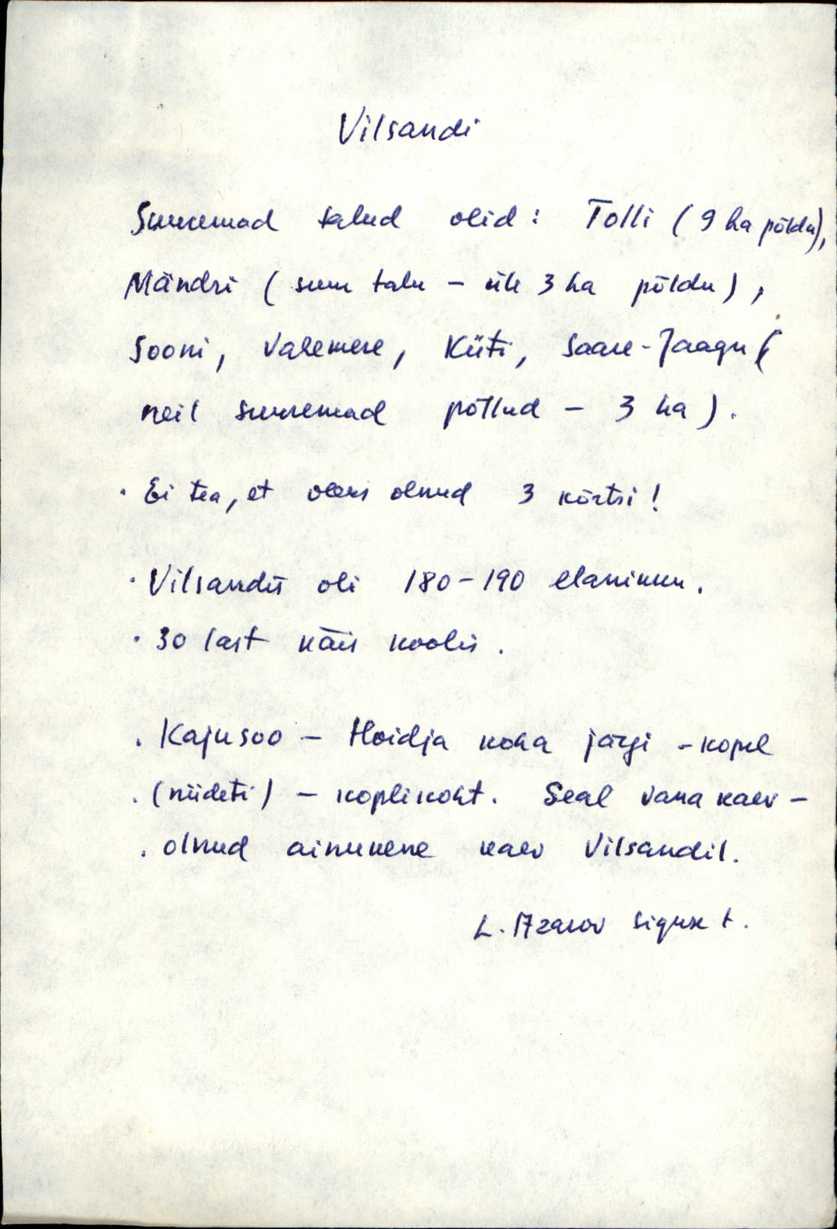 Vilsandi
Suuremad talud olid: Tolli (9 ha põldu),
Mändri (suur talu – üle 3 ha põldu),
Sooni, Valemere, Küti, Saare-Jaagu (
neil suuremad põllud – 3 ha).
· Ei tea, et oleks olnud 3 kõrtsi!
· Vilsandis oli 180-190 elanikku.
· 30 last käis koolis.
. Kajusoo – Hoidja koha järgi - kopel
. (niideti) – koplikoht. Seal vana kaev –
. olnud ainukene kaev Vilsandil.
L. Azarov t.